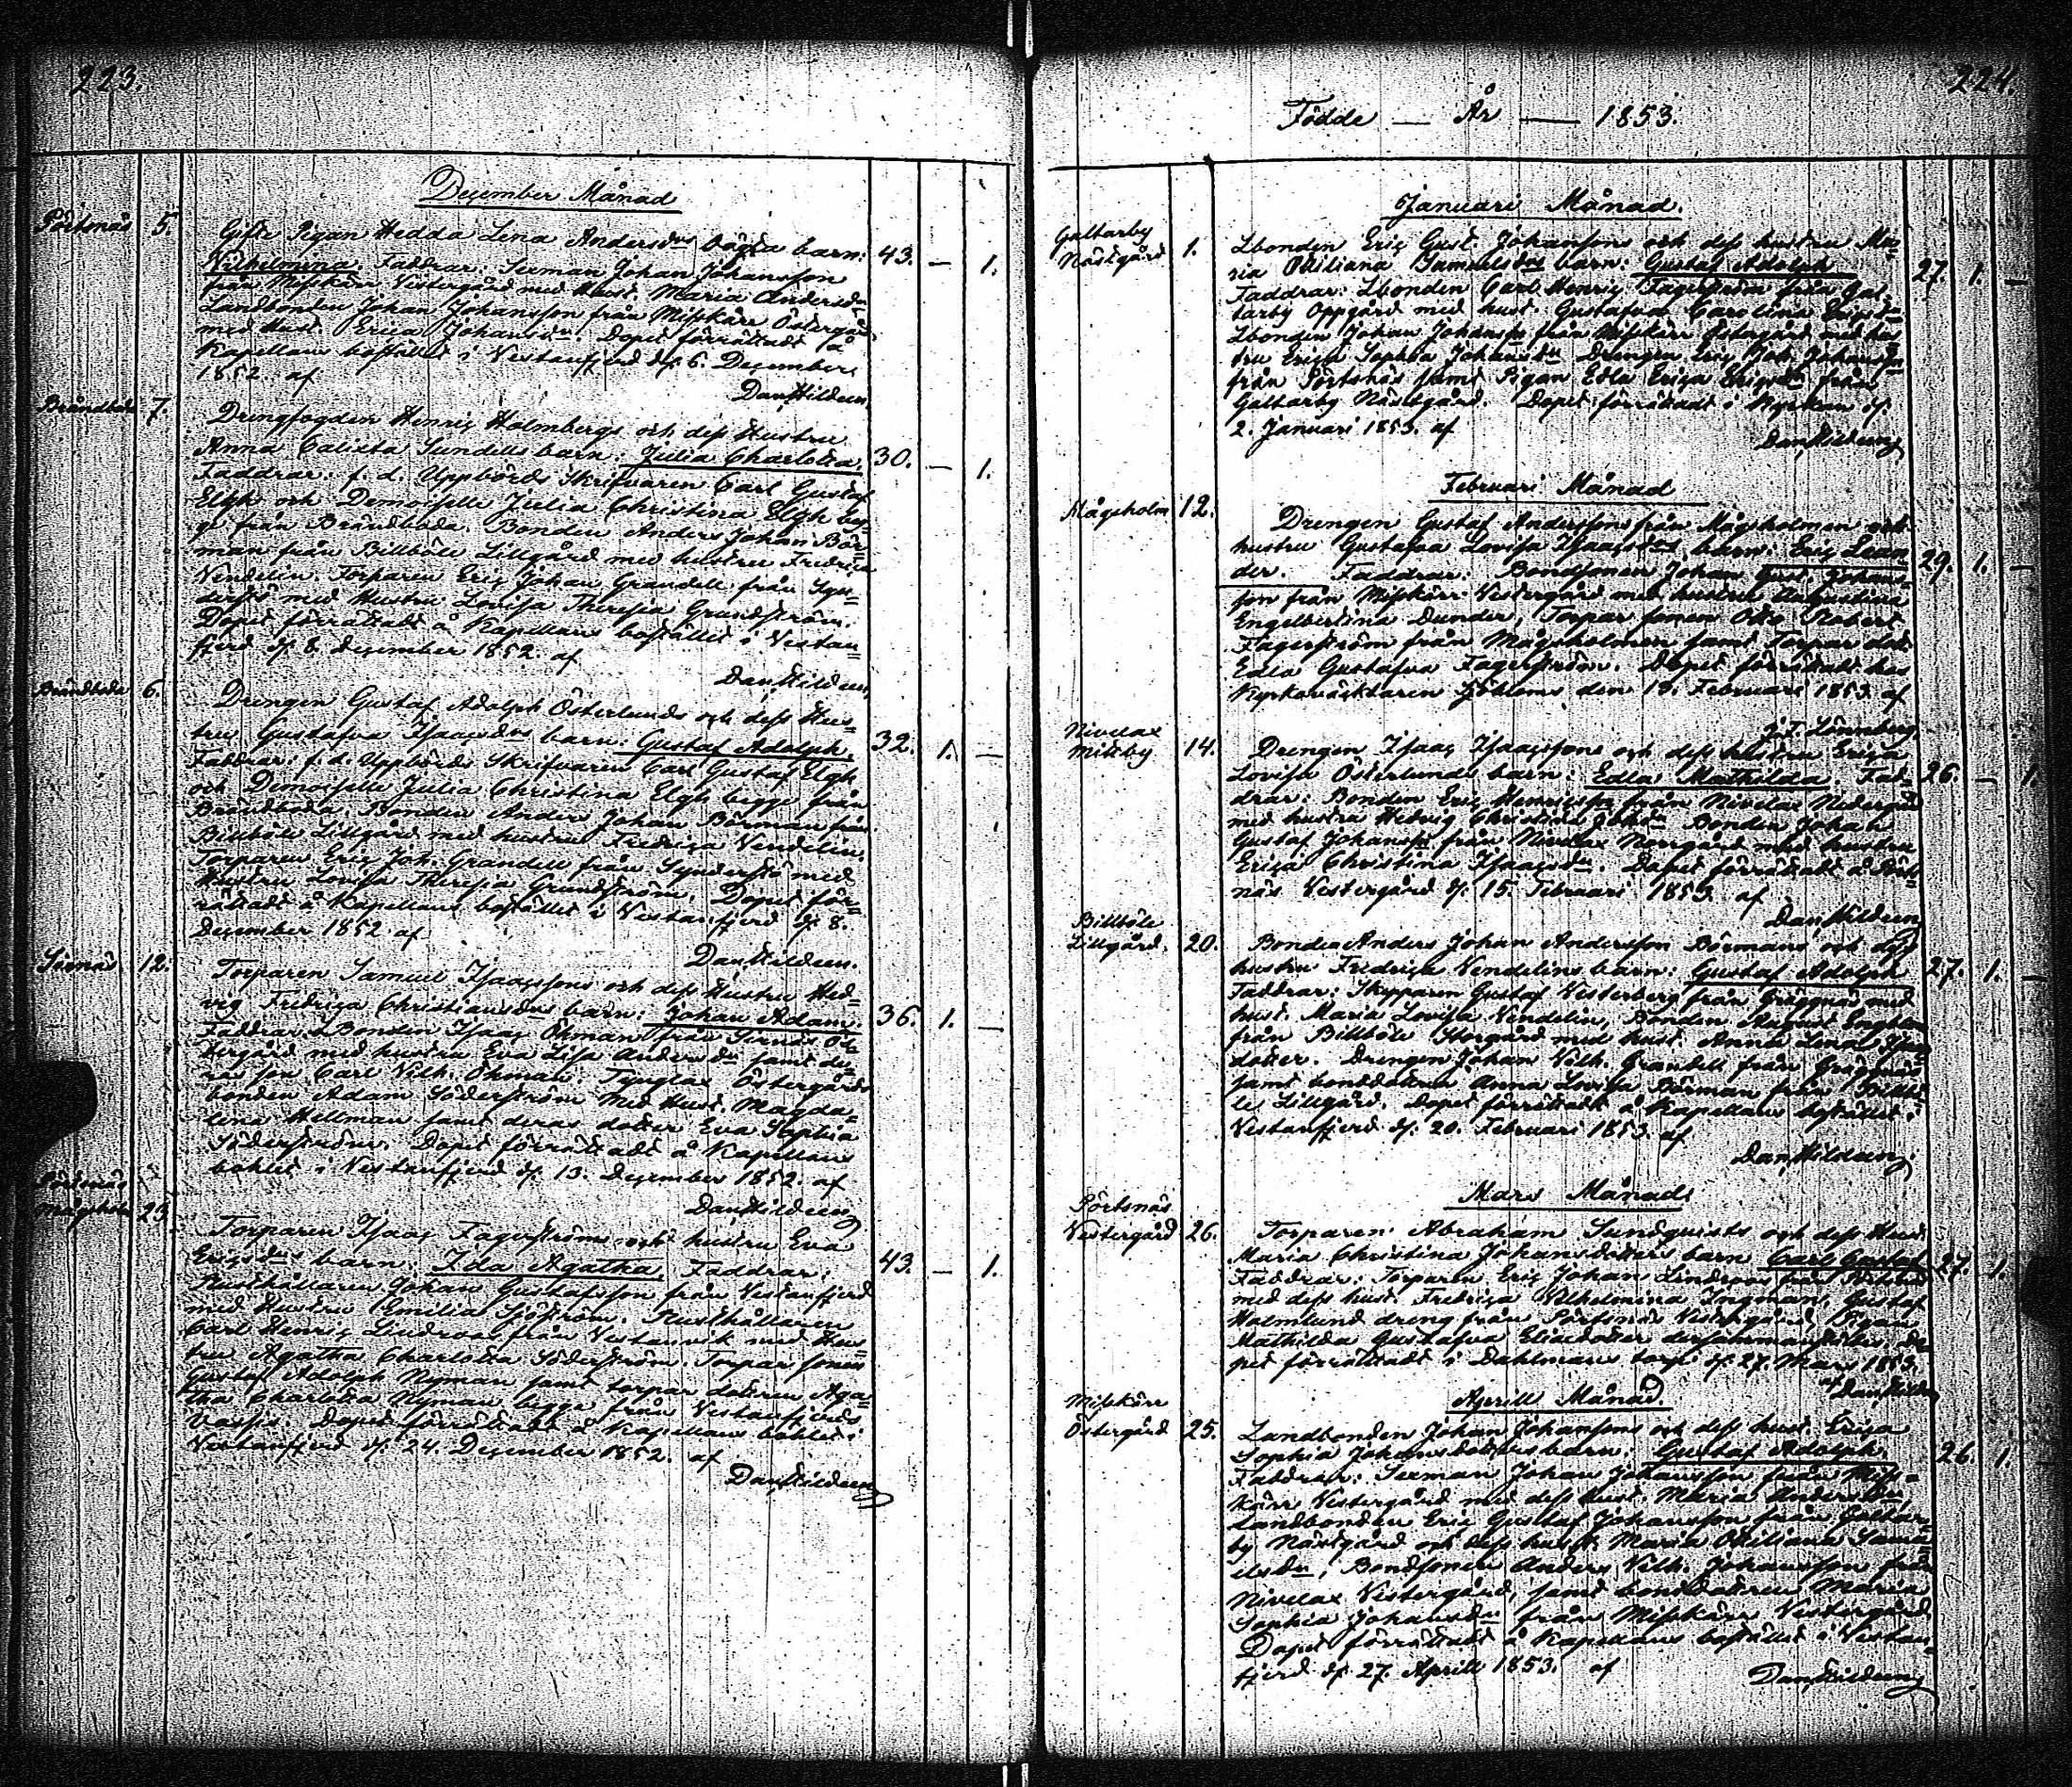 223.
December Månad
Pörtsnäs 5. Gifte Pigan Hedda Lena Andersdrs barn:
Wilhelmina, Faddrar: Sexman Johan Johansson 43. — 1.
från Misskärr Vestergård med Hust. Maria Andersdr
Landbonden Johan Johansson från Misskärr Östergård
med Hust. Erica Johansdr. Dopet förrättadt å
Kapellans boställe i Vestanfjerd d. 6. December
1852. af
Dan. Hildeen.
Brändboda 7. Drengfogden Henric Holmbergs och dess Hustru
Anna Calixta Sundells barn: Julia Charlotta, 30. — 1.
Faddrar: f. d. Uppbörds Skrifvaren Carl Gustaf
Elgh och Demoiselle Julia Christina Elgh beg-
ge från Brändboda. Bonden Anders Johan Bör-
man från Billböle Lillgård med hustru Fredrica
Vendelin. Torparen Eric Johan Grandell från Syn-
derstö med Hustru Lovisa Theresia Grundström.
Dopet förrättadt å Kapellans bostället i Vestan-
fjerd d. 8. December 1852. af
Dan. Hildeen.
Brändboda 6. Drengen Gustaf Adolph Österlunds och dess Hus-
tru Gustafva Isaacsdrs barn: Gustaf Adolph, 32. 1. —
Faddrar: f. d. Uppbörds Skrifvaren Carl Gustaf Elgh
och Demoiselle Julia Christina Elgh begge från
Brändboda. Bonden Anders Johan Börman från
Billböle Lillgård med hustru Fredrica Vendelin.
Torparen Eric Joh. Grandell från Synderstö med
Hustru Lovisa Theresia Grundström. Dopet för-
rättadt å Kapellans bostället i Vestanfjerd d. 8.
December 1852 af
Dan. Hildeen.
Sirnäs 12. Torparen Samuel Isaacssons och dess Hustru Hed-
vig Fredrica Christiansdrs barn: Johan Adam. 36. 1. —
Faddrar: Bonden Isaac Öhman från Sirnäs Ös-
tergård med hustru Eva Lisa Andersdr samt de-
ras son Carl Vilh. Öhman: Tynglax Östergårds
bonden Adam Söderström Med Hust. Magda-
lena Hellman samt deras dotter Eva Sophia
Söderström. Dopet förrättadt å Kapellans
bohlet i Vestanfjerd d. 13. December 1852. af
Dan. Hildeen
Pörtsnäs
Mågsholm 23. Torparen Isaac Fagerströms och hustru Eva
Ericsdrs barn: Ida Agatha, Faddrar: 43. — 1.
Rusthållaren Johan Gustafsson från Vestanfjerd
med Hustru Emilia Sjöström. Rusthållaren
Carl Henric Lindroos från Vestanvik med Hus-
tru Agatha Charlotta Söderström. Torpar sonen
Gustaf Adolph Nyman samt torpar dottren Aga-
tha Charlotta Nyman begge från Vestanfjerds
Dopet förrättadt å Kapellans bohlet i
Vestanfjerd d. 24. December 1852. af
Dan. Hildeen
224.
Födde — År — 1853.
Januari Månad.
Galtarby
Nästgård 1. Lbonden Eric Gust. Johanssons och dess hustru Ma-
ria Ottiliana Samuelsdrs barn: Gustaf Adolph 27. 1. —
Faddrar: Lbonden Carl Henric Fagerström från Gal-
tarby Oppgård med hust. Gustafva Carolina Ericsdr
Lbonden Johan Johansson från Misskärr Östergård med hu-
stru Erica Sophia Johansdr Drengen Eric Joh. Johansson
från Pörtsnäs samt Pigan Edla Erica Ericsdr från
Galtarby Nästgård. Dopet förrättadt i Kyrkan d.
2. Januari 1853. af
Dan. Hildeen
Februari Månad
Mågsholm 12. Drengen Gustaf Anderssons från Mågsholmen och
hustru Gustafva Lovisa Isaacsdrs barn: Eric Lean-
der. Faddrar: Bondsonen Johan Gust. Johans- 29. 1. —
son från Misskärr Vestergård med hustru Augustina
Engelbertina Dunder, Torpar sonen Otto Robert
Fagerström från Mågsholmen samt Torpar dott.
Edla Gustafva Fagerström. Dopet förrättadt hos
Kyrkoväcktaren Sjöbloms den 13. Februari 1853. af
J. F. Lönnberg
Nivelax
Mittby 14. Drengen Isaac Isaacssons och dess hustru Erica
Lovisa Österlunds barn: Edla Mathilda. Fad- 26. — 1.
drar: Bonden Eric Henricsson från Nivelax Nedergård
med hustru Hedvig Christina Johdr Bonden Johan
Gustaf Johansson från Nivelax Norrgård med hustru
Erica Christina Isaacsdr. Dopet förrättadt å Pört-
näs Vestergård d. 15. Februari 1853. af
Dan. Hildeen
Billböle
Lillgård. 20. Bonden Anders Johan Andersson Börmans och dess
hustru Fredrica Vendelins barn: Gustaf Adolph 27. 1. —
Faddrar: Skepparen Gustaf Vesterberg från Gräggnäs med
hust. Maria Lovisa Vendelin, Bonden August Engblom
från Billböle Storgård med hust. Anna Lena
dotter. Drengen Johan Vilh. Grandell från Gräggnäs
samt bonddottren Anna Lovisa Börman från Billbö-
le Lillgård. Dopet förrättadt å Kapellans bostället i
Vestanfjerd d. 20. Februari 1853. af
Dan. Hildeen
Mars Månad
Pörtsnäs
Vestergård 26. Torparen Abraham Sundqvists och dess Hust.
Maria Christina Johansdotters barn Carl Gustaf 27. 1.
Faddrar: Torparen Eric Johan Lindroos från
med dess hust. Fredrica Wilhelmina Ingman, Gustaf
Holmlund dreng från Pörtsnäs Vestergård, Pigan
Mathilda Gustafva Eliædotter dersammastädes. Do-
pet förrättadt i Dahlmans torp d. 27. Mars 1853.
af Dan. Hildeen
Aprill Månad.
Misskärr
Östergård 25. Landbonden Johan Johanssons och dess hust. Erica
Sophia Johansdotters barn: Gustaf Adolph 26. 1.
Faddrar: Sexman Johan Johansson från Miss-
kärr Vestergård med dess Hust. Maria Andersdr,
Landbonden Eric Gustaf Johansson från Galtar-
by Nästgård och dess hust. Maria Ottiliana Samu-
elsdr, Bondsonen Anders Vilh. Johansson från
Nivelax Vestergård, samt bonddottren Maria
Sophia Johansdr från Misskärr Vestergård
Dopet förrättadt å Kapellans bostället i Vestan-
fjerd d. 27. Aprill 1853. af
Dan. Hildeen